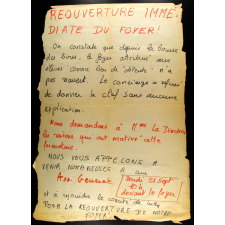 REOUVERTURE IMME-
DIATE DU FOYER!
On constate que depuis la bourse
des livres, le foyer attribué aux
élèves comme lieu de "détente" n'a
pas rouvert. Le concierge a refusé
de donner la clef sans aucune
explication.
Nous demandons à Mme la Directrice
les raisons qui ont motivé cette
fermeture.
NOUS VOUS APPELONS A
VENIR NOMBREUSES A une
Ass. Générale
Jeudi 21 sept
10h
devant le foyer
et à rejoindre le comité de lutte
POUR LA REOUVERTURE DE NOTRE
FOYER